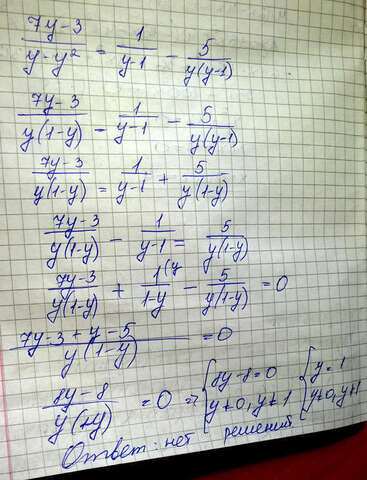 (7y-3)/(y-y²) = 1/(y-1) - 5/(y(y-1))
(7y-3)/(y(1-y)) - 1/(y-1) - 5/(y(y-1))
(7y-3)/(y(1-y)) = 1/(y-1) + 5/(y(1-y))
(7y-3)/(y(1-y)) - 1/(y-1) = 5/(y(1-y))
(7y-3)/(y(1-y)) + 1(y/(1-y) - 5/(y(1-y)) = 0
(7y-3+y-5)/(y(1-y)) = 0
(8y-8)/(y(1-y)) = 0 => { 8y-8=0 y≠0, y≠1 { y=1 y≠0, y≠1
Ответ: нет решений